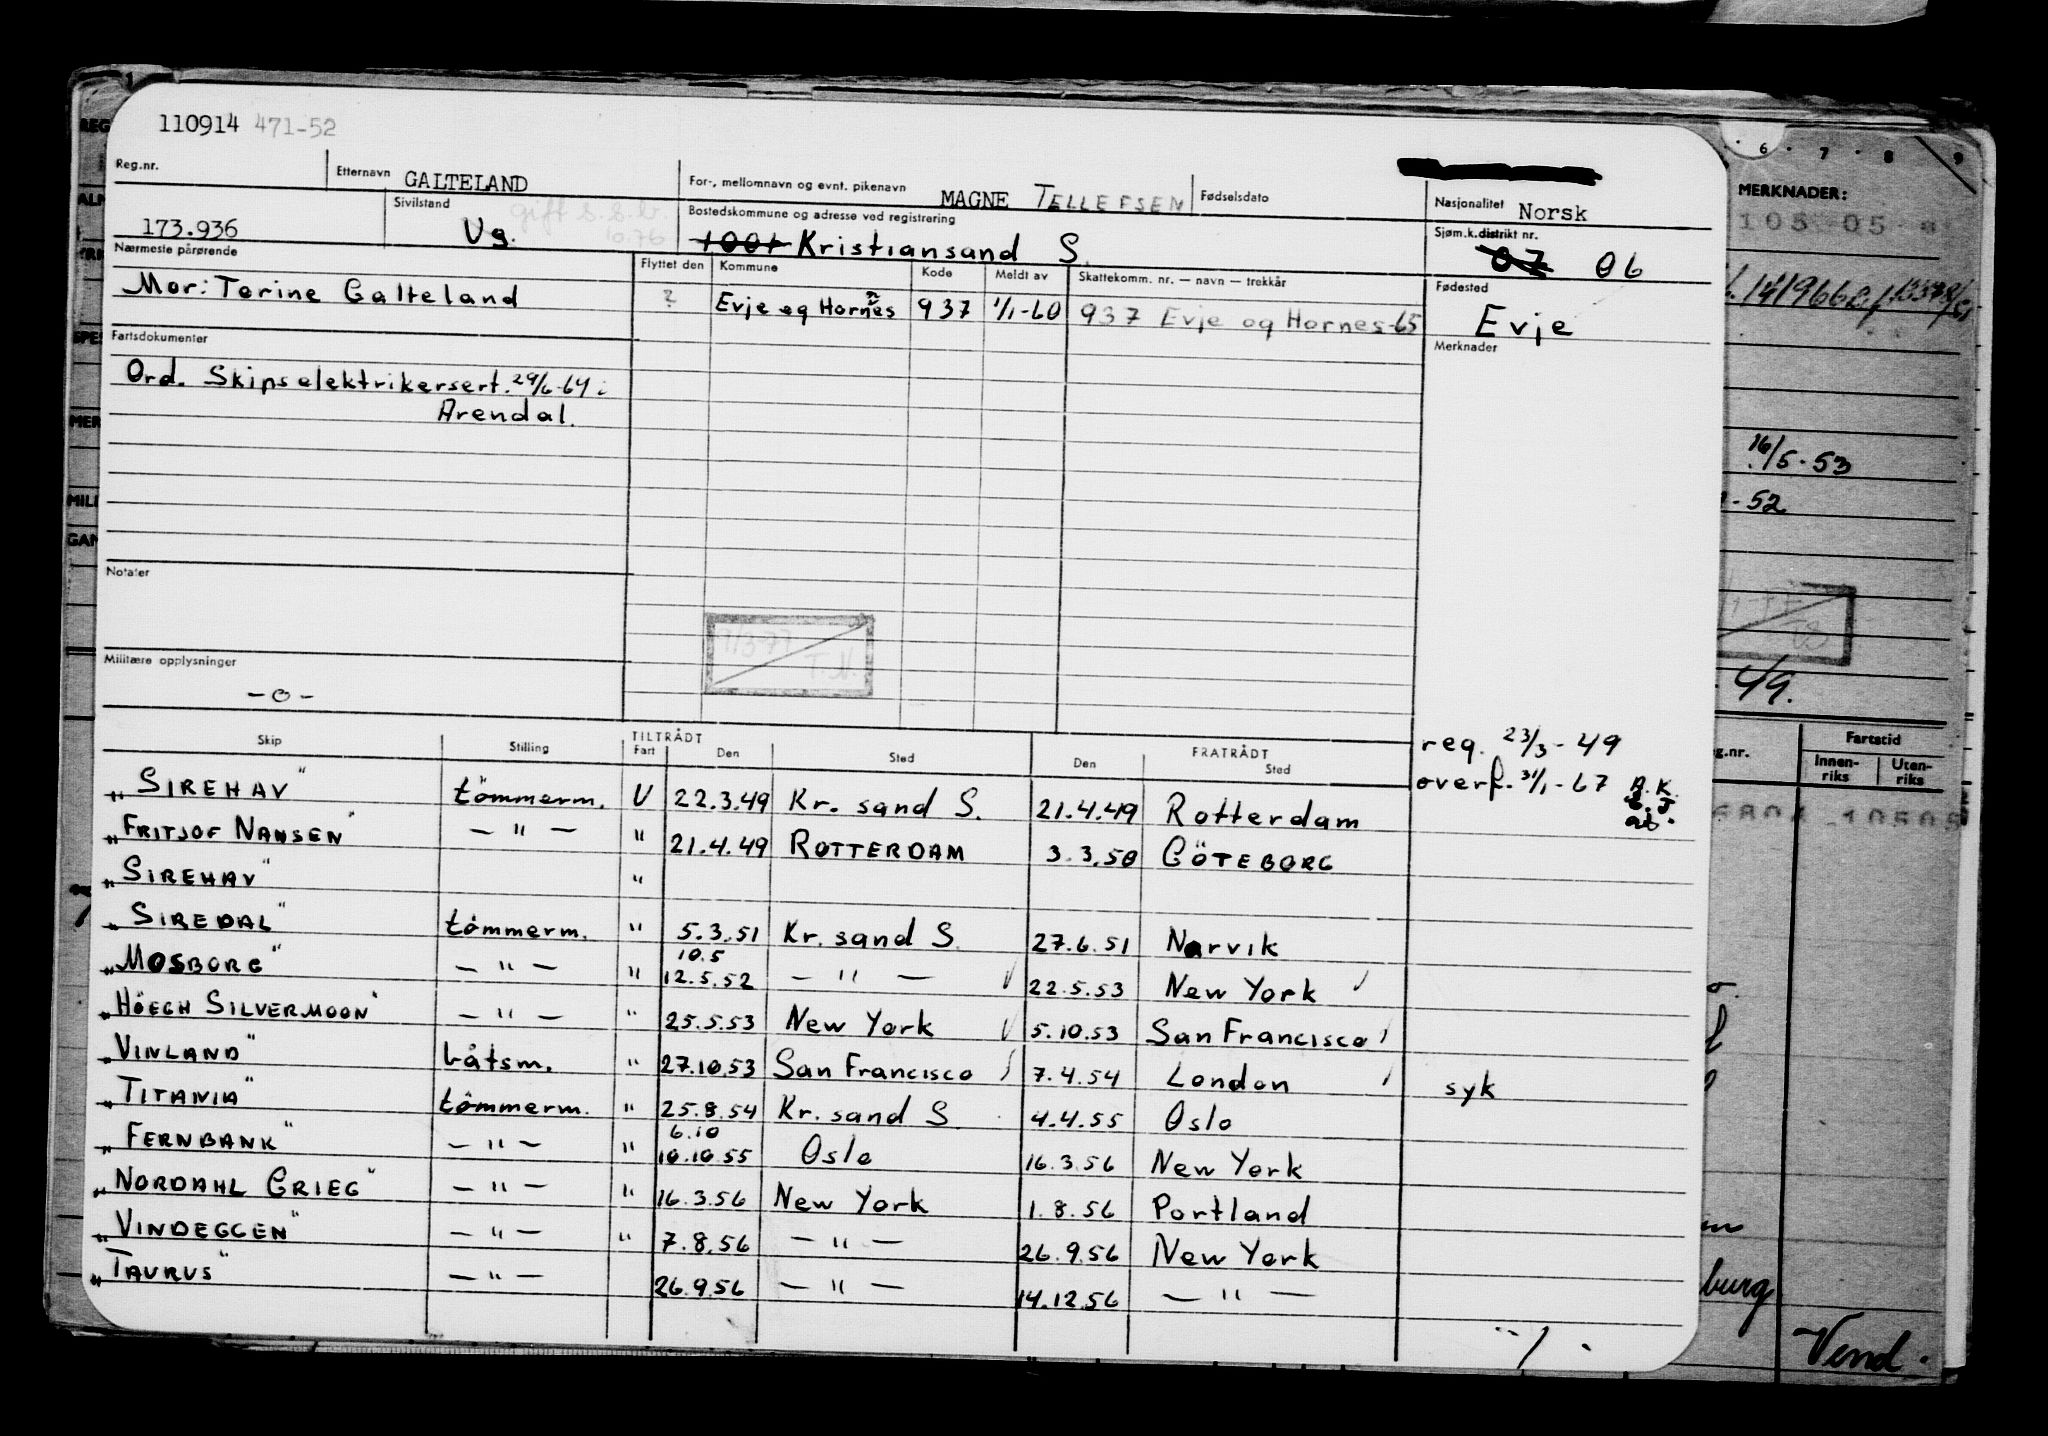 110914 471-52
Reg.nr. Etternavn GALTELAND For-, mellomnavn og evnt. pikenavn MAGNE TELLEFSEN Fødselsdato Nasjonalitet Norsk
173.936 Sivilstand Ug. gift Bostedskommune og adresse ved registrering 1001 Kristiansand S. Sjøm.k.distrikt nr. 07 06
Nærmeste pårørende Flyttet den Kommune Kode Meldt av Skattekomm. nr. — navn — trekkår Fødested
Mor: Terine Galteland ? Evje og Hornnes 937 1/1-60 937 Evje og Hornes-65 Evje
Fartsdokumenter Merknader
Ord. Skipselektrikersert. 29/6-64 i
Arendal.
Notater
Militære opplysninger
— o —
Skip Stilling TILTRÅDT Fart Den Sted Den FRATRÅDT Sted
reg. 23/3-49
overf. 31/1-67
"SIREHAV" tömmerm. U 22.3.49 Kr. sand S. 21.4.49 Rotterdam
"FRITJOF NANSEN" — " — " 21.4.49 ROTTERDAM 3.3.50 GÖTEBORG
"SIREHAV" "
"SIREDAL" tömmerm. " 5.3.51 Kr. sand S. 27.6.51 Narvik
10.5
"MOSBORG" — " — " 12.5.52 — " — 22.5.53 New York
"HÖEGH SILVERMOON" — " — " 25.5.53 New York 5.10.53 San Francisco
"VINLAND" båtsm. " 27.10.53 San Francisco 7.4.54 London syk
"TITANIA" tömmerm. " 25.8.54 Kr. sand S. 4.4.55 Oslo
6.10
"FERNBANK" — " — " 10.10.55 Oslo 16.3.56 New York
"NORDAHL GRIEG" — " — " 16.3.56 New York 1.8.56 Portland
"VINDEGGEN" — " — " 7.8.56 — " — 26.9.56 New York
"TAURUS" — " — 26.9.56 — " — 14.12.56 — " —
MERKNADER:
16/5-53
-52
49.
Fartstid
Innen-riks Uten-riks
burg
Vend.